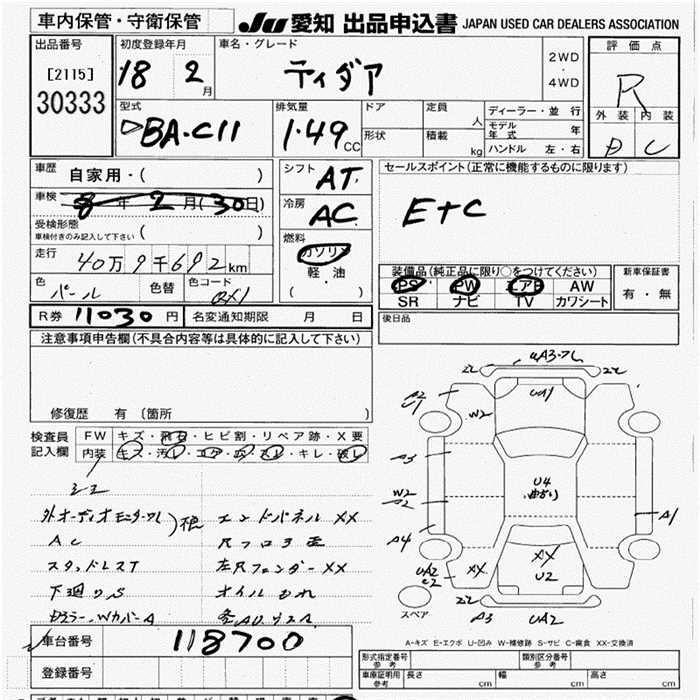 車内保管・守衛保管
JU 愛知 出品申込書 JAPAN USED CAR DEALERS ASSOCIATION
出品番号
[2115]
30333
初度登録年月
18 2 月
車名・グレード
ティダア
2WD
・
4WD
評価点
R
外装 内装
D C
型式
DBA-C11
排気量
1.49 CC
ドア
形状
定員 人
積載 kg
ディーラー・並行
モデル年式 年
ハンドル 左・右
車歴
自家用・( )
車検
8年 2月(30日)
受検形態
車検付きのみ記入して下さい ( )
走行
40万9千692km
色 パール 色替 色コード QX1
シフト AT
冷房 AC
燃料
ガソリン
軽・油
( )
セールスポイント(正常に機能するものに限ります)
E+C
装備品(純正品に限り○をつけてください)
PS PW エアB AW
SR ナビ TV カワシート
新車保証書
有・無
R券 11030 円 名変通知期限 月 日
後日品
注意事項申告欄(不具合内容等は具体的に記入して下さい)
修復歴 有 〔箇所 〕
検査員記入欄
FW キズ・飛石・ヒビ割・リペア跡・X要
内装 キズ・汚レ・コゲ・穴・スレ・キレ・破レ
シミ
外オーディオモニターワレ
AC
スタッドレスT
下廻りS
エンドパネルXX
左Rフェンダー XX
オイルもれ
UA3・ワレ
UA1
W2
A3
W2
A2
A4
U4
A1
UA2
XX
XX
U2
A3
UA2
スペア
A-キズ E-エクボ U-凹み W-補修跡 S-サビ C-腐食 XX-交換済
車台番号 118700
登録番号
形式指定番号 参考
類別区分番号 参考
車庫証明用 参考
長さ cm
幅 cm
高さ cm